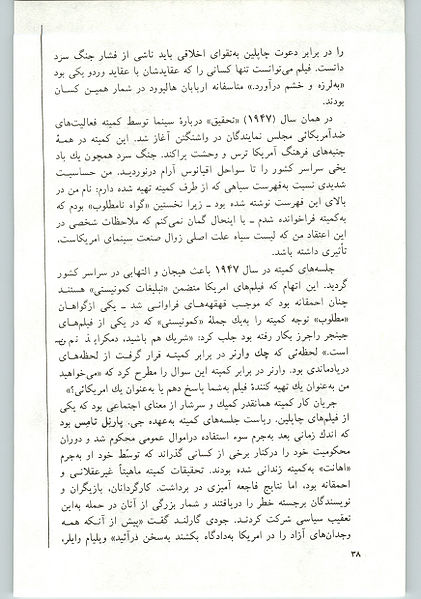 را در برابر دعوت چاپلین به‌تقوای اخلاقی باید ناشی از فشار جنگ سرد
دانست. فیلم می‌توانست تنها کسانی را که عقایدشان با عقاید وردو یکی بود
«به‌لرزه و خشم درآورد.» متاسفانه اربابان هالیوود در شمار همین کسان
بودند.
در همان سال (۱۹۴۷) «تحقیق» دربارهٔ سینما توسط کمیته فعالیت‌های
ضدآمریکائی مجلس نمایندگان در واشنگتن آغاز شد. این کمیته در همهٔ
جنبه‌های فرهنگ آمریکا ترس و وحشت پراکند. جنگ سرد همچون یك باد
یخی سراسر کشور را تا سواحل اقیانوس آرام درنوردید. من حساسیت
شدیدی نسبت به‌فهرست سیاهی که از طرف کمیته تهیه شده دارم: نام من در
بالای این فهرست نوشته شده بود ـ زیرا نخستین «گواه نامطلوب» بودم که
به‌کمیته فراخوانده شدم ـ با اینحال گمان نمی‌کنم که ملاحظات شخصی در
این اعتقاد من که لیست سیاه علت اصلی زوال صنعت سینمای امریکاست،
تأثیری داشته باشد.
جلسه‌های کمیته در سال ۱۹۴۷ باعث هیجان و التهابی در سراسر کشور
گردید. این اتهام که فیلم‌های امریکا متضمن «تبلیغات کمونیستی» هستند
چنان احمقانه بود که موجب قهقهه‌های فراوانی شد ـ یکی ازگواهان
«مطلوب» توجه کمیته را به‌یك جملهٔ «کمونیستی» که در یکی از فیلم‌های
جینجر راجرز بکار رفته بود جلب کرد: «شریك هم باشید، دمکراسی
است.» لحظه‌ئی که چك وارنر در برابر کمیته قرار گرفت از لحظه‌های
دریادماندنی بود. وارنر در برابر کمیته این سوال را مطرح کرد که «می‌خواهید
من به‌عنوان یك تهیه کنندهٔ فیلم به‌شما پاسخ دهم یا به‌عنوان یك امریکائی؟»
جریان کار کمیته همانقدر کمیك و سرشار از معنای اجتماعی بود که یکی
از فیلم‌های چاپلین. ریاست جلسه‌های کمیته به‌عهده جی. پارنل تامس بود
که اندك زمانی بعد به‌جرم سوء استفاده دراموال عمومی محکوم شد و دوران
محکومیت خود را درکنار برخی از کسانی گذراند که توسط خود او به‌جرم
«اهانت» به‌کمیته زندانی شده بودند. تحقیقات کمیته ماهیتاً غیرعقلانی و
احمقانه بود، اما نتایج فاجعه آمیزی در برداشت. کارگردانان، بازیگران و
نویسندگان برجسته خطر را دریافتند و شمار بزرگی از آنان در حمله به‌این
تعقیب سیاسی شرکت کردند. جودی گارلند گفت «پیش از آنکه همه
وجدان‌های آزاد را در امریکا به‌دادگاه بکشند به‌سخن درآئید» ویلیام وایلر،
۳۸